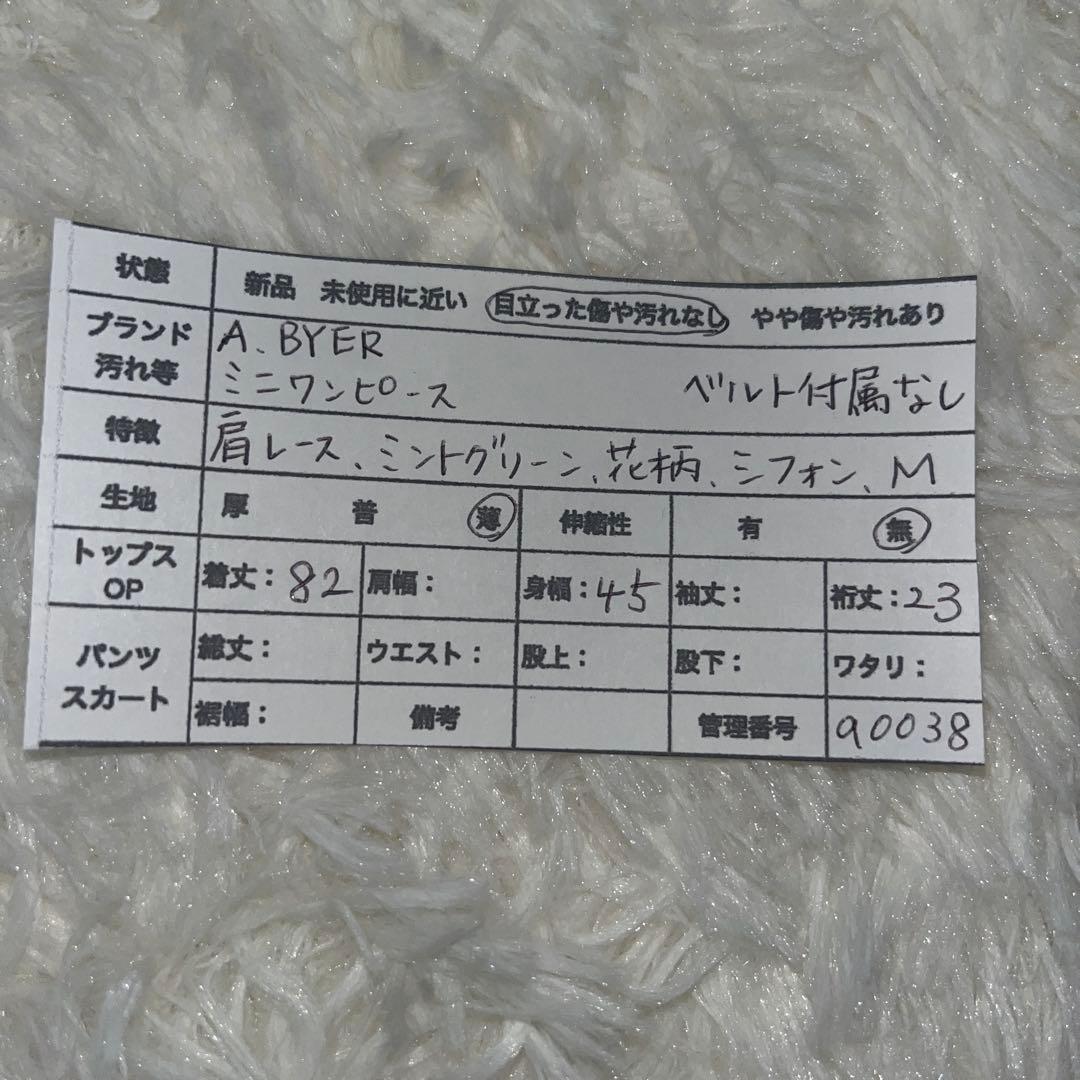 状態 新品 未使用に近い 目立った傷や汚れなし やや傷や汚れあり
ブランド 汚れ等 A.BYER
ミニワンピース ベルト付属なし
特徴 肩レース、ミントグリーン、花柄、シフォン、M
生地 厚 普 薄 伸縮性 有 無
トップス OP 着丈:82 肩幅: 身幅:45 袖丈: 裄丈:23
パンツ スカート 総丈: ウエスト: 股上: 股下: ワタリ:
裾幅: 備考 管理番号 a0038